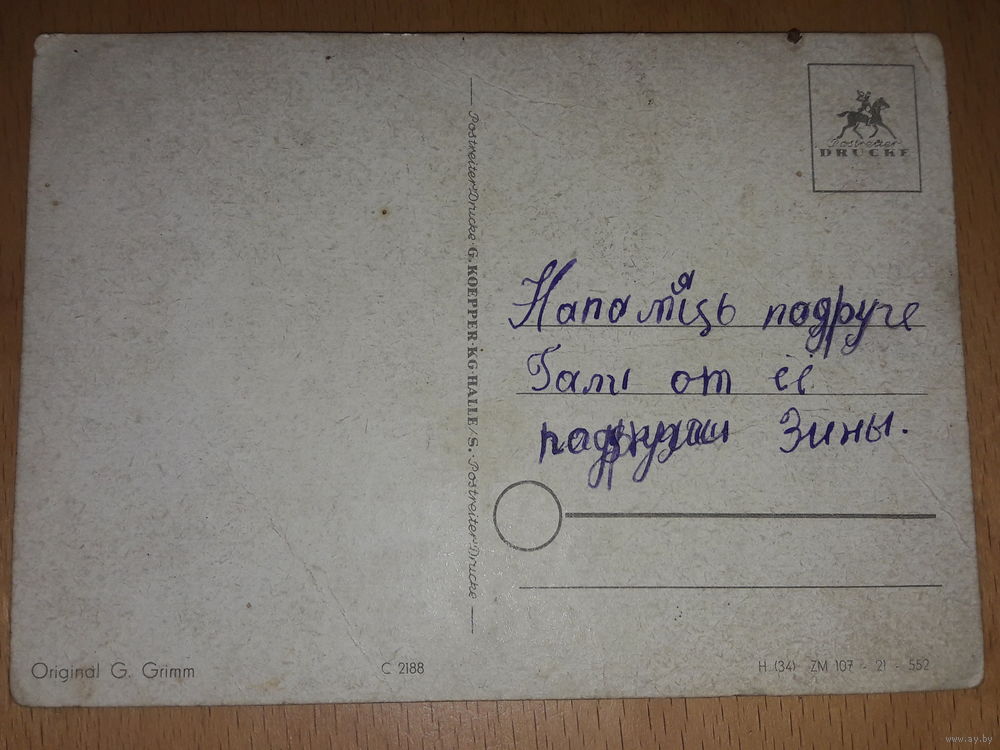 Postreiter
DRUCKE
Postreiter-Drucke · G. KOEPPER · KG · HALLE/S. · Postreiter-Drucke
Напамяць подруге
Гали от её
подруги Зины.
Original G. Grimm
C 2188
H (34) ZM 107 - 21 - 552
www.ay.by